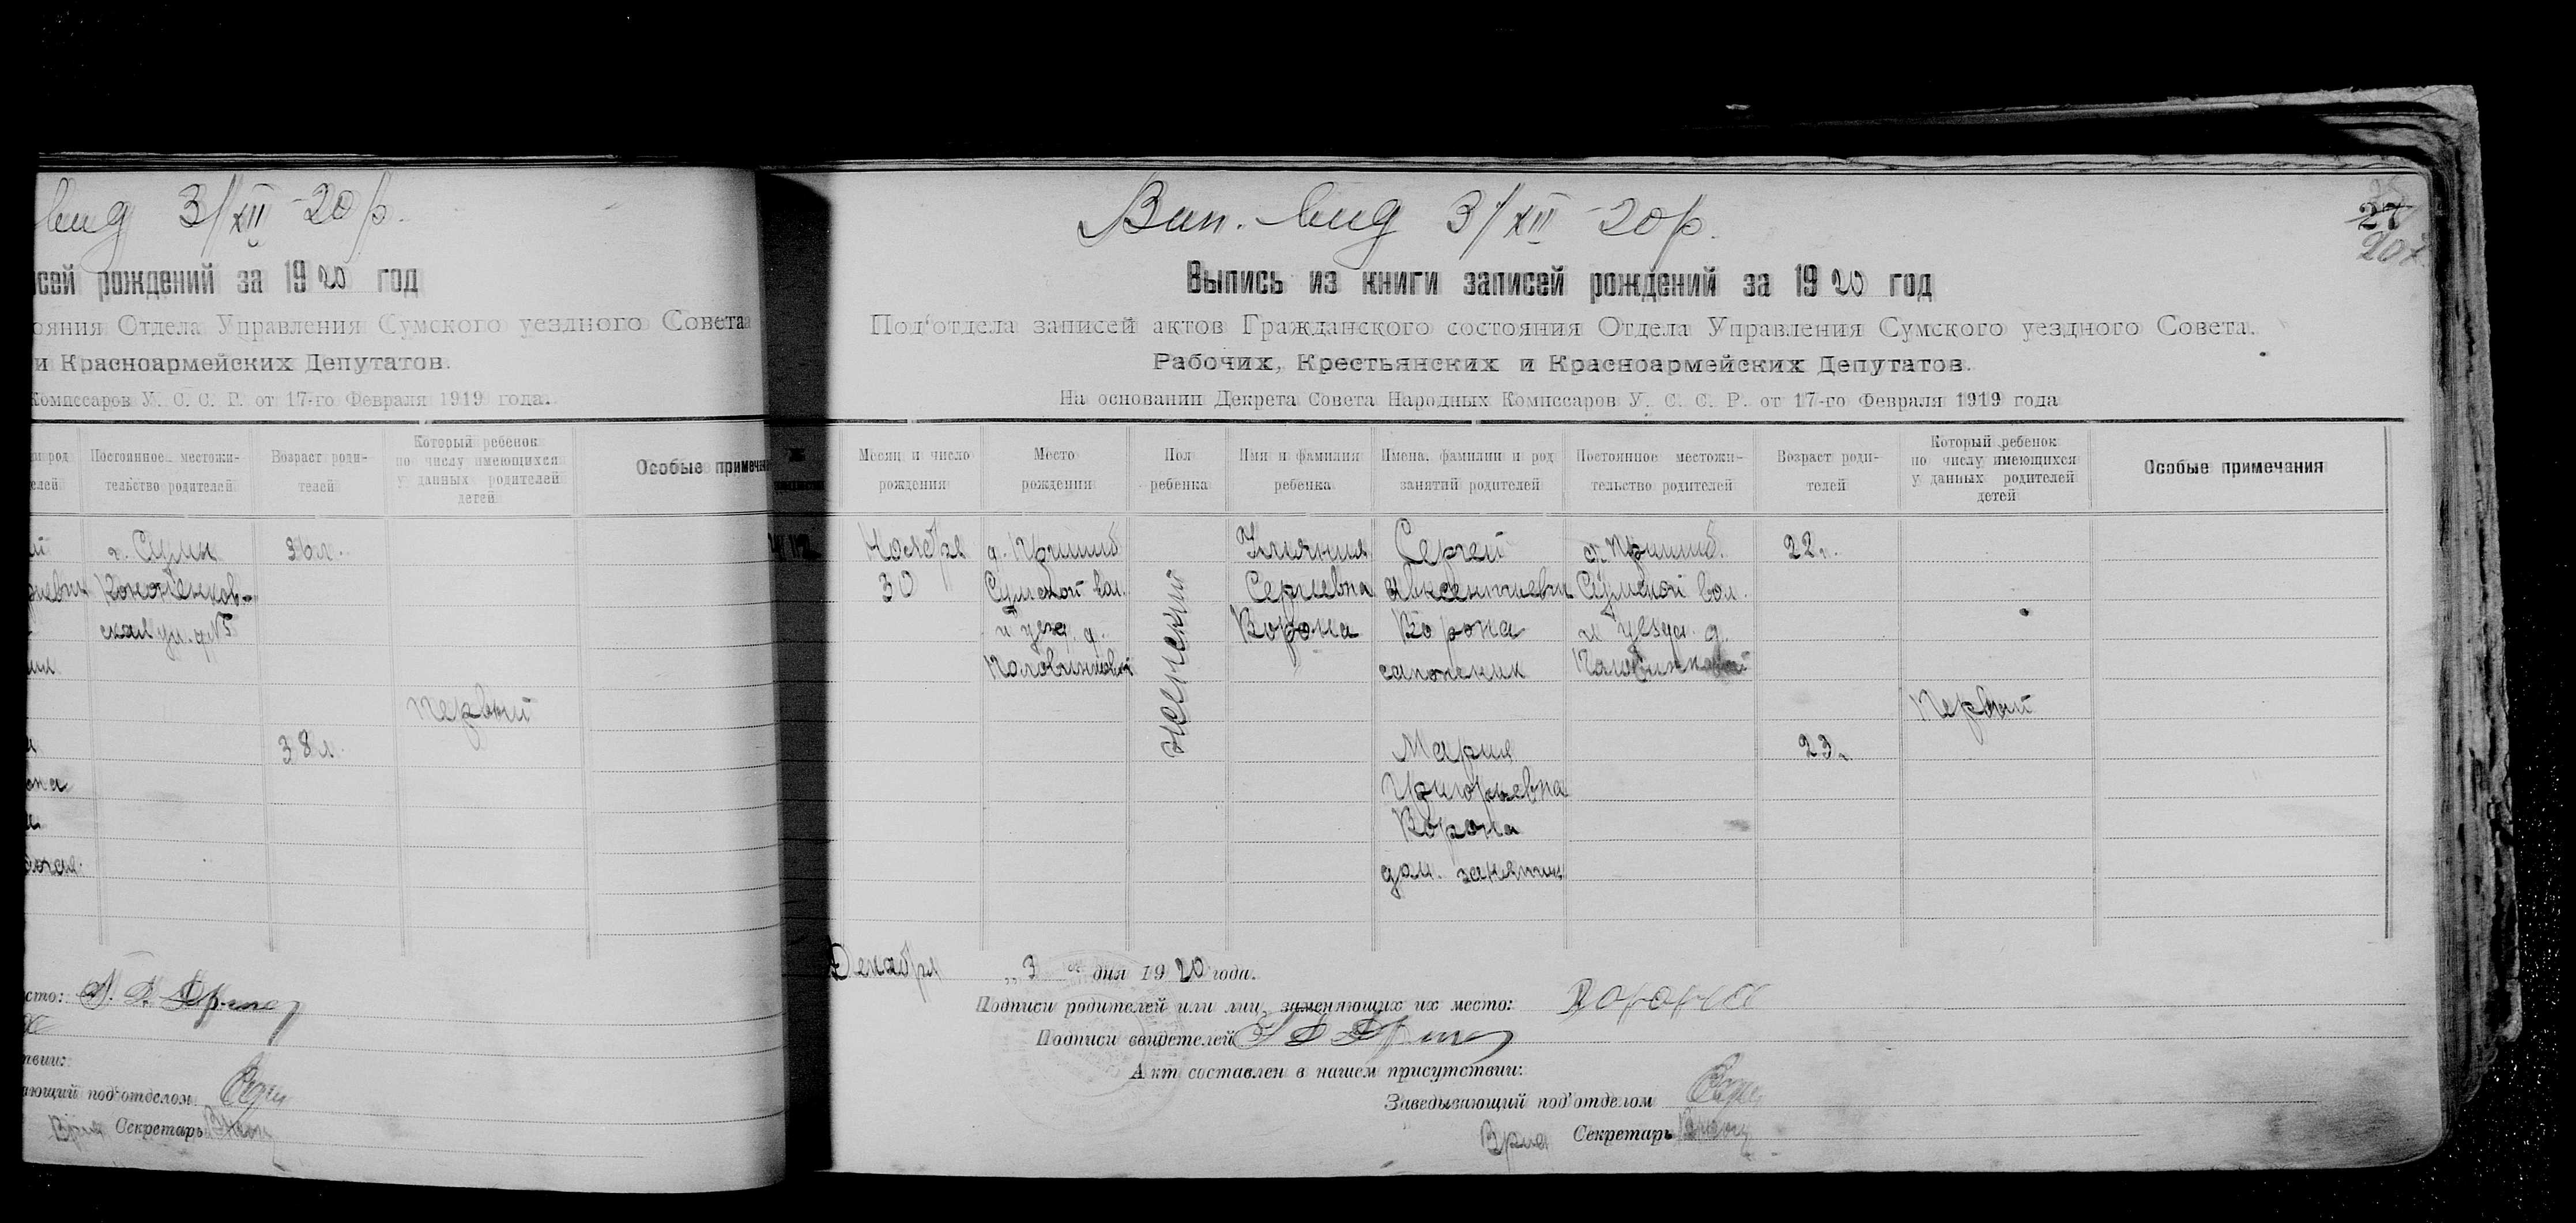 вид 3/XII -20 р.
исей рождений за 1920 год
ояния Отдела Управления Сумского уездного Совета
и Красноармейских Депутатов.
Комиссаров У. С. С. Р. от 17-го Февраля 1919 года.
Постоянное местожи-
тельство родителей
Возраст роди-
телей
Который ребенок
по числу имеющихся
у данных родителей
детей
Особые примеча
г. Сумы
ская ул. д. №5
36 л.
38 л.
Первый
сто:
ствии:
ающий под'отделом
Врид Секретарь
Вип. вид 3/XII -20 р.
27
207
Выпись из книги записей рождений за 1920 год
Под'отдела записей актов Гражданского состояния Отдела Управления Сумского уездного Совета.
Рабочих, Крестьянских и Красноармейских Депутатов.
На основании Декрета Совета Народных Комиссаров У. С. С. Р. от 17-го Февраля 1919 года
Месяц и число
рождения
Место
рождения
Пол
ребенка
Имя и фамилия
ребенка
Имена, фамилии и род
занятий родителей
Постоянное местожи-
тельство родителей
Возраст роди-
телей
Который ребенок
по числу имеющихся
у данных родителей
детей
Особые примечания
Ноября
30
Сумской вол.
и уезд. д.
женский
Ульяния
Сергиевна
Ворона
Сергей
Авксентиевич
Ворона
сапожник
Мария
Григорьевна
Ворона
дом. занятия
Сумской вол.
и уезда д.
22 л.
23 л.
Первый
Декабря „3“ дня 1920 года.
Подписи родителей или лиц, заменяющих их место: Ворона
Подписи свидетелей
Акт составлен в нашем присутствии:
Заведывающий под'отделом
Врид Секретарь